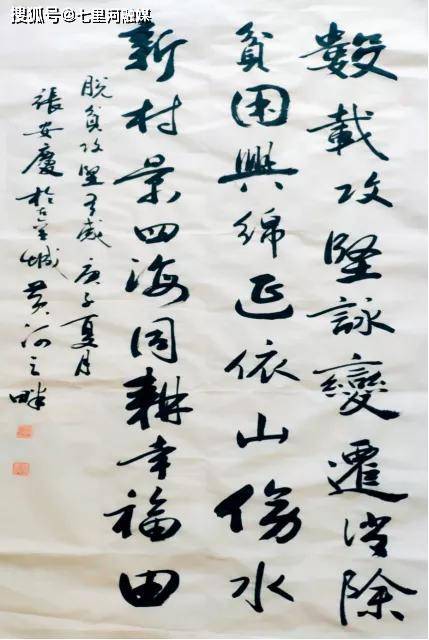 搜狐号@七里河融媒
數載攻堅詠變遷消除
貧困興綿延依山傍水
新村景四海同耕幸福田
脫貧攻堅有感 庚子夏月
張安慶於古金城黃河之畔